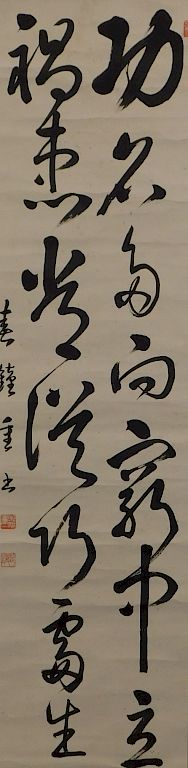 功名多向窮中立
禍患常從巧處生
春鐘書